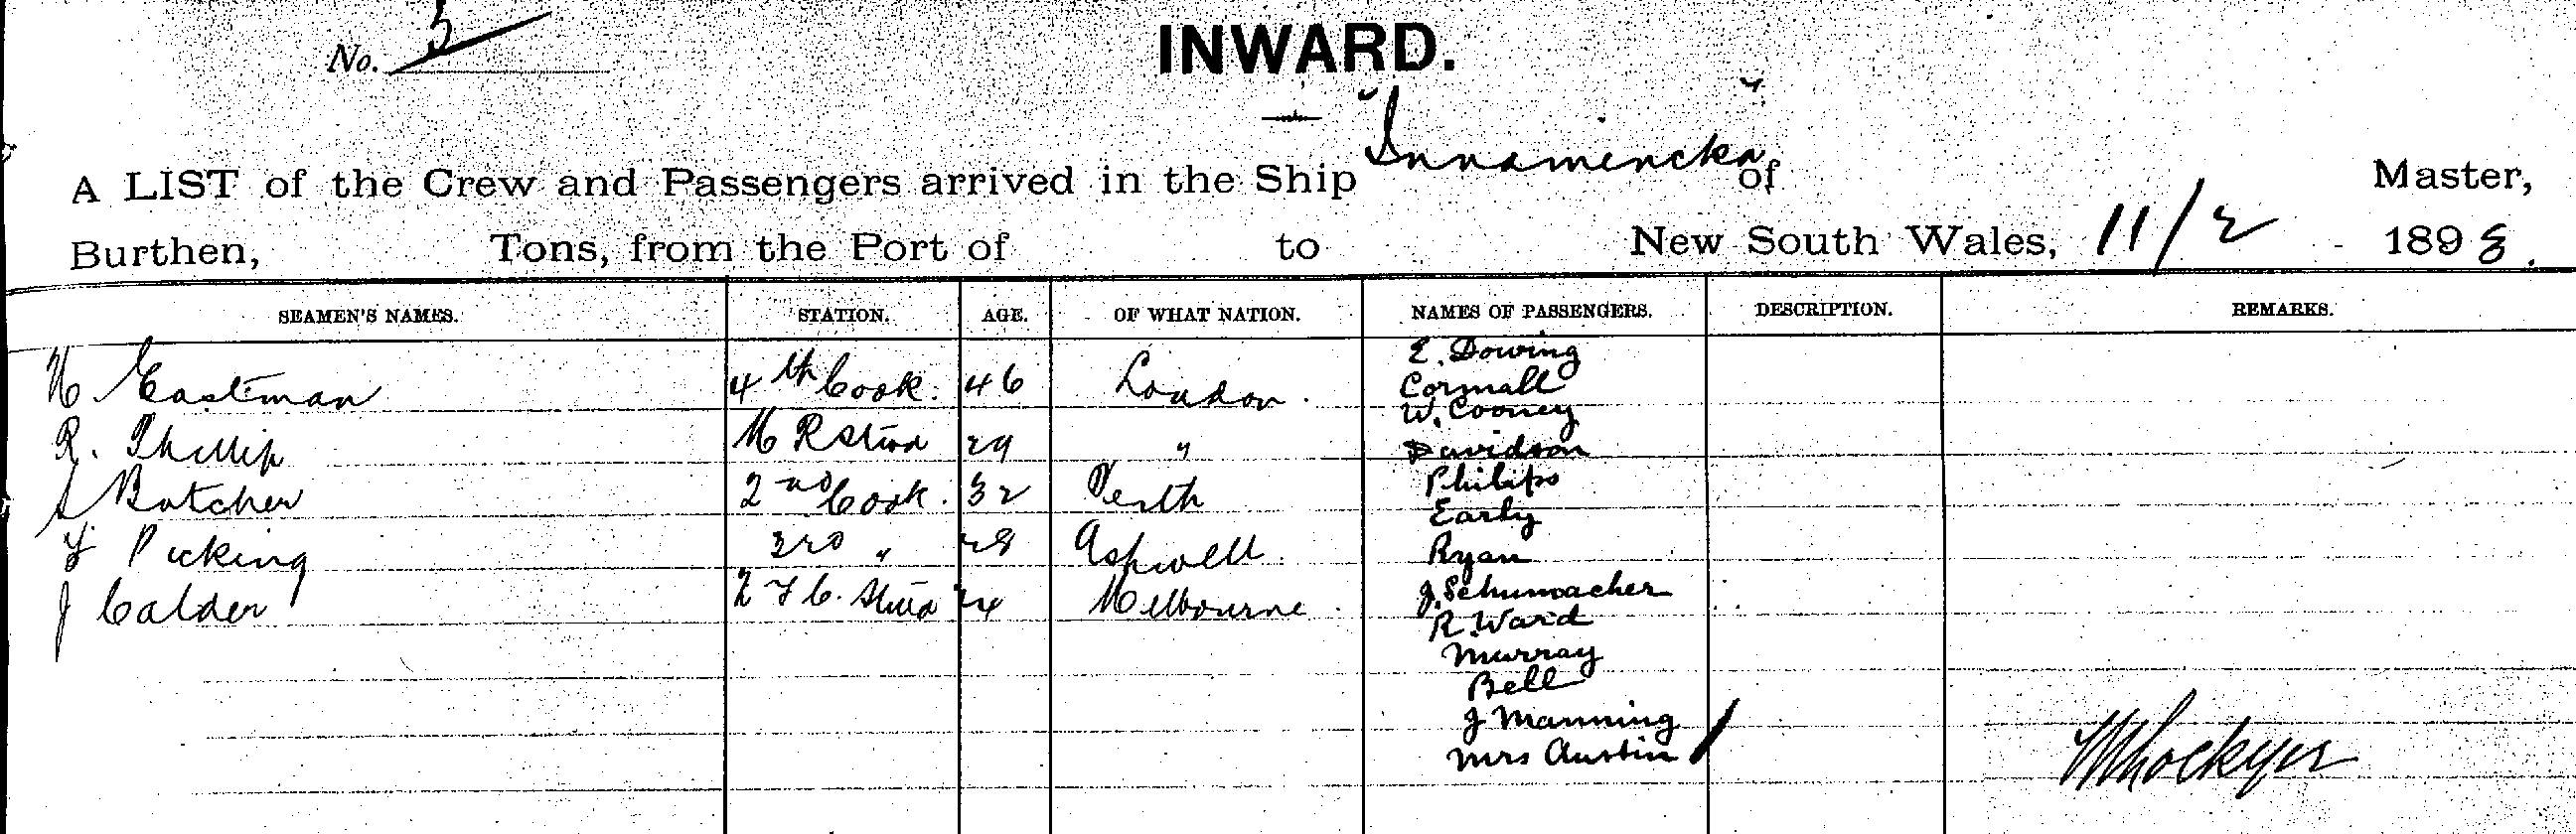 No. 3
INWARD.
A LIST of the Crew and Passengers arrived in the Ship Innamincka of Master,
Burthen, Tons, from the Port of to New South Wales, 11/2 1898.
SEAMEN'S NAMES. STATION. AGE. OF WHAT NATION. NAMES OF PASSENGERS. DESCRIPTION. REMARKS.
E. Dowing
H Eastman 4th Cook. 46 London. Cormall
W. Cooney
R. Phillip M R Stwd 29 " Davidson
S Butcher 2nd Cook. 32 Perth Philips
Early
F Picking 3rd " 28 Ashwell Ryan
J Calder 2 F C. Stwd 24 Melbourne. J. Schumacher
R. Ward
Murray
Bell
J Manning
Mrs Austin